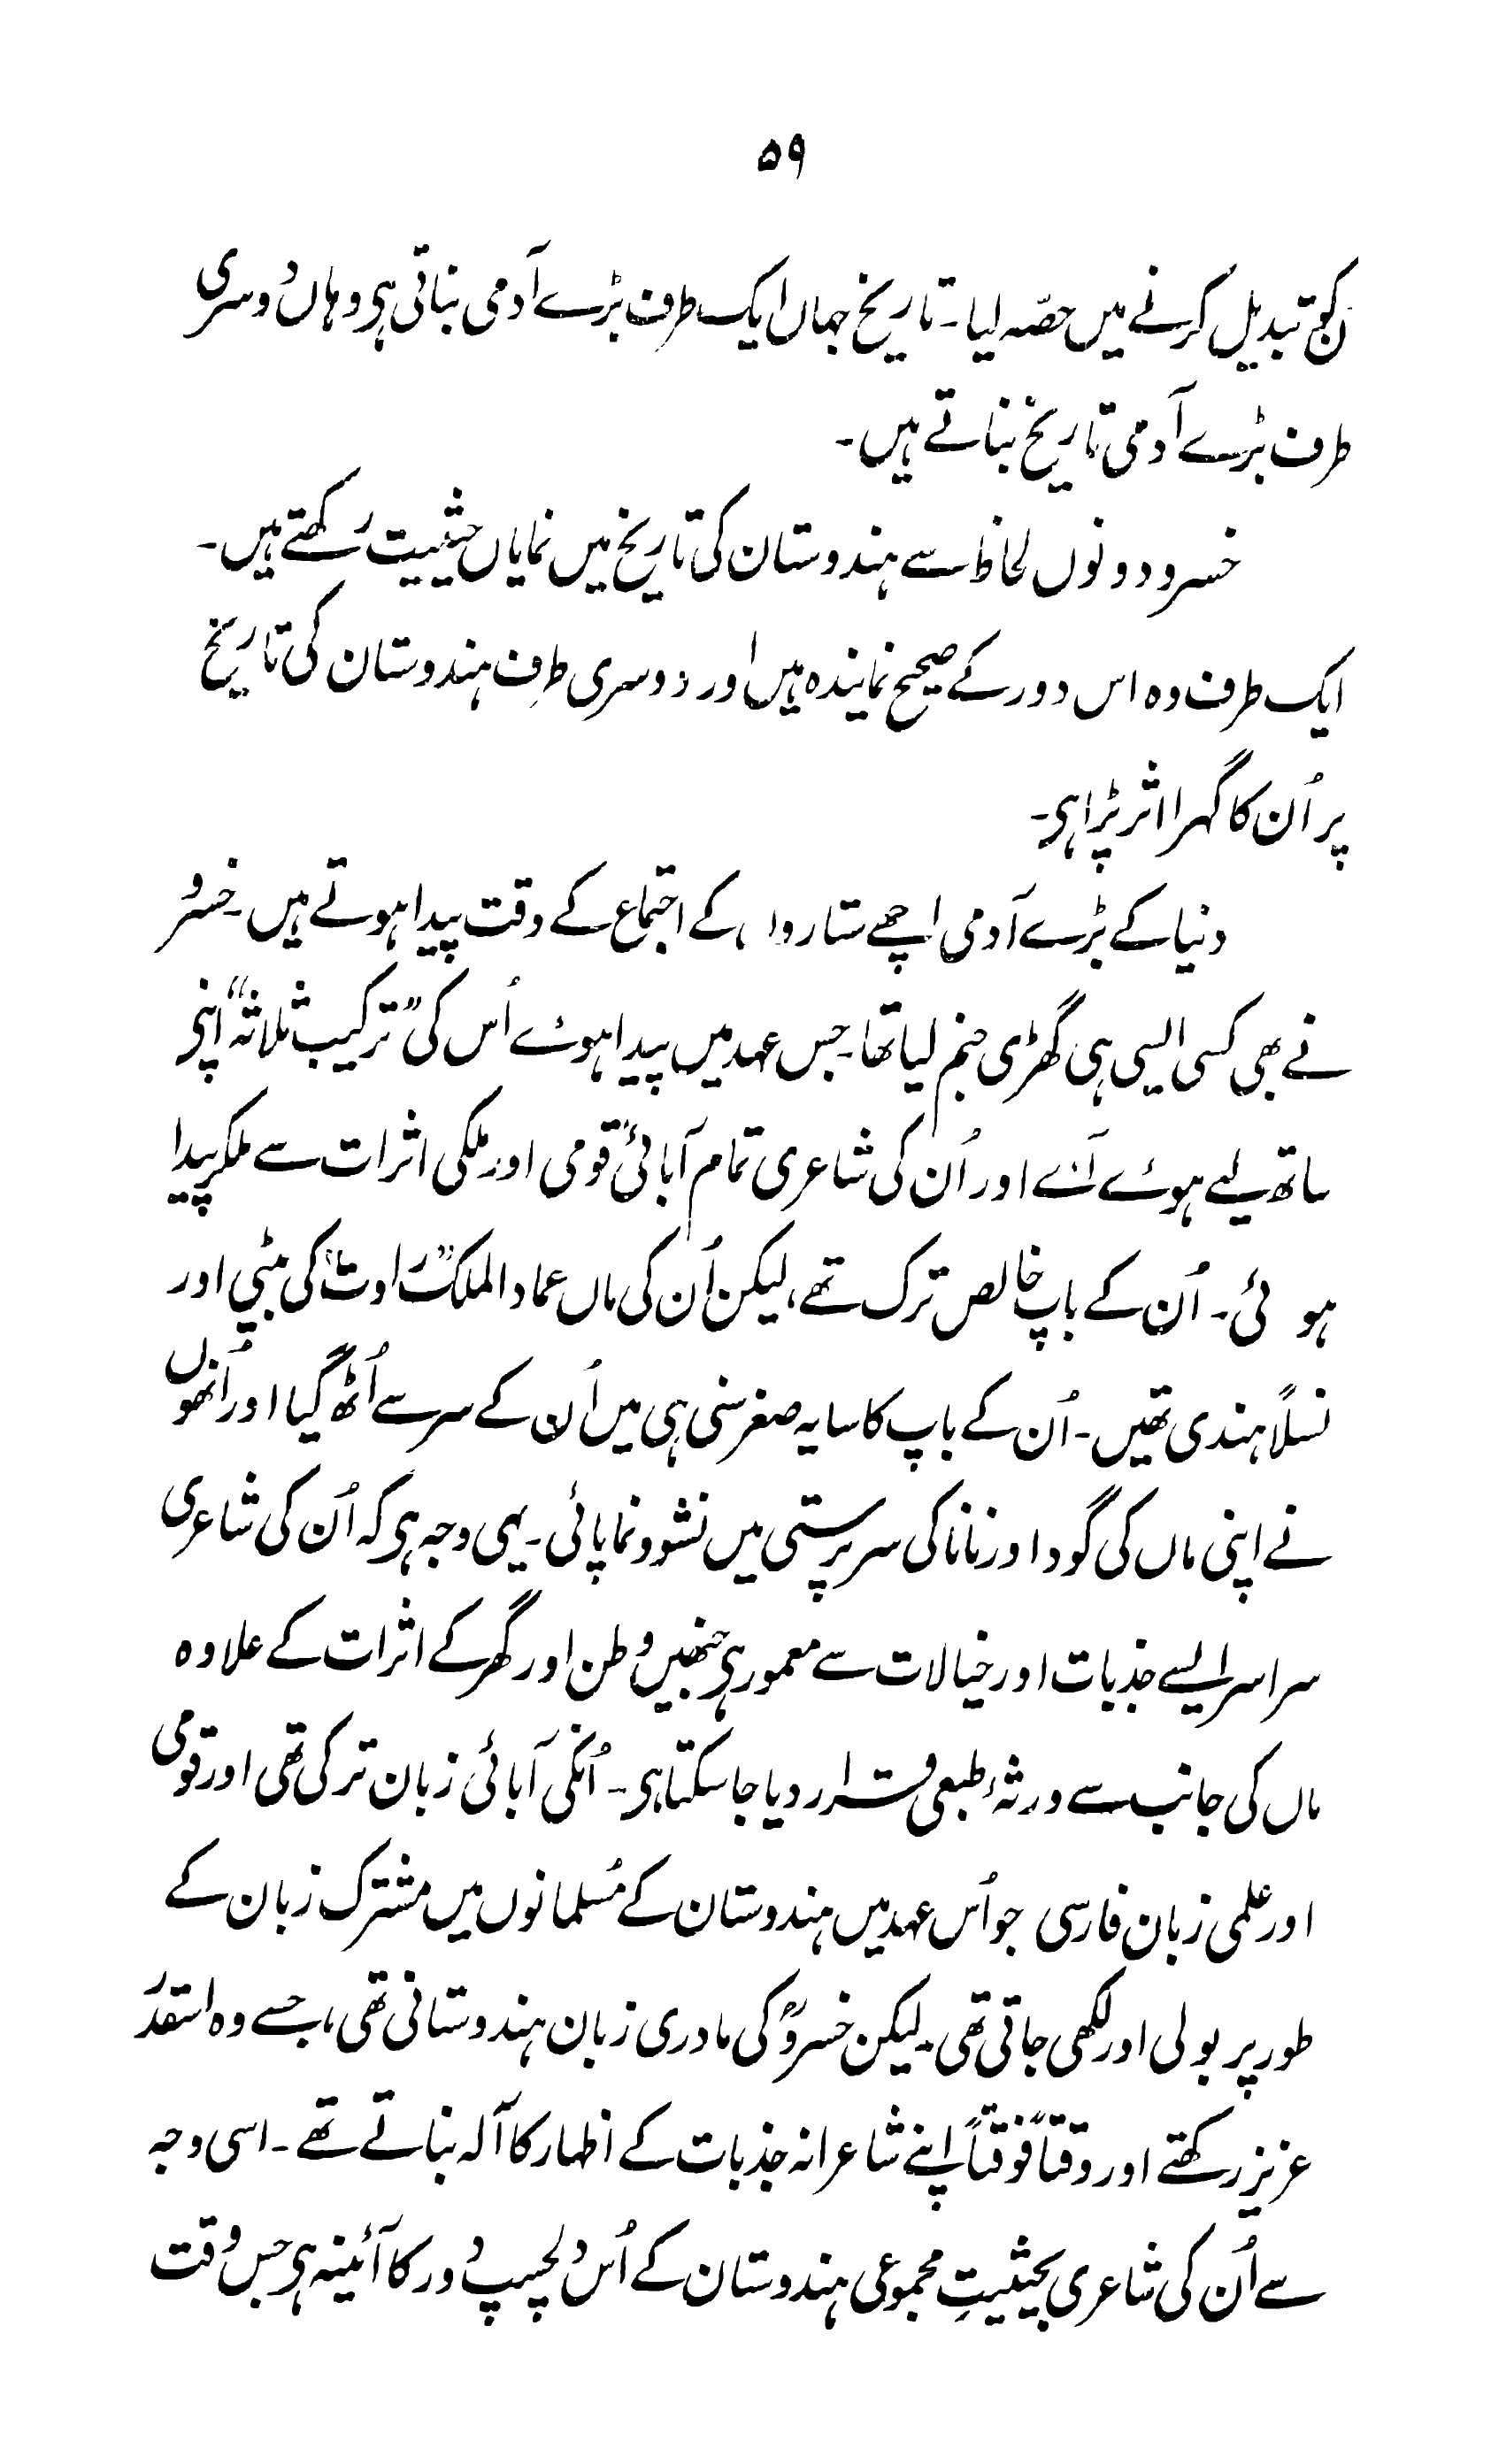 ۵۹
کو تبدیل کرنے میں حصّہ لیا۔ تاریخ جہاں ایک طرف بڑے آدمی بناتی ہی وہاں دوسری
طرف بڑے آدمی تاریخ بناتے ہیں۔
خسرو دونوں لحاظ سے ہندوستان کی تاریخ میں نمایاں حیثیت رکھتے ہیں۔
ایک طرف وہ اس دور کے صحیح نمایندہ ہیں اور دوسری طرف ہندوستان کی تاریخ
پر اُن کا گہرا اثر پڑا ہی۔
دنیا کے بڑے آدمی اچھے ستاروں کے اجتماع کے وقت پیدا ہوتے ہیں۔ خسرو
نے بھی کسی ایسی ہی گھڑی جنم لیا تھا۔ جس عہد میں پیدا ہوئے اُس کی ”ترکیب ثلاثہ“ اپنی
ساتھ لیے ہوئے آئے اور اُن کی شاعری تمام آبائی، قومی اور ملکی اثرات سے ملکر پیدا
ہوئی۔ اُن کے باپ خالص ترک تھے، لیکن اُن کی ماں عماد الملک ”راوت“ کی بیٹی اور
نسلاً ہندی تھیں۔ اُن کے باپ کا سایہ صغر سنی ہی میں اُن کے سر سے اُٹھ گیا اور اُنھوں
نے اپنی ماں کی گود اور نانا کی سرپرستی میں نشوونما پائی۔ یہی وجہ ہی کہ اُن کی شاعری
سراسر ایسے جذبات اور خیالات سے معمور ہی جنھیں وطن اور گھر کے اثرات کے علاوہ
ماں کی جانب سے ورثۂ طبعی قرار دیا جا سکتا ہی۔ اُنکی آبائی زبان ترکی تھی اور قومی
اور علمی زبان فارسی جو اُس عہد میں ہندوستان کے مُسلمانوں میں مشترک زبان کے
طور پر بولی اور لکھی جاتی تھی۔ لیکن خسروؒ کی مادری زبان ہندوستانی تھی، جسے وہ اسقدر
عزیز رکھتے اور وقتاً فوقتاً اپنے شاعرانہ جذبات کے اظہار کا آلہ بناتے تھے۔ اسی وجہ
سے اُن کی شاعری بحیثیتِ مجموعی ہندوستان کے اُس دلچسپ دور کا آئینہ ہی جس وقت